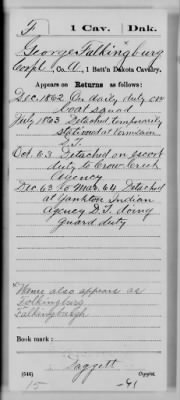 F | 1 Cav. | Dak.
George Falkingburg
Corpl, Co. A, 1 Batt'n Dakota Cavalry.
Appears on Returns as follows:
Dec. 1862 On daily duty on
boat squad
July 1863 Detached temporarily
stationed at Vermilion
D.T.
Oct. 63 Detached on escort
duty to Crow Creek
Agency
Dec 63 to Mar. 64 Detached
at Yankton Indian
Agency D.T. doing
guard duty
Name also appears as
Folkingburg
Falkingburgh
Book mark:
Daggett
(546) Copyist.
15 -91